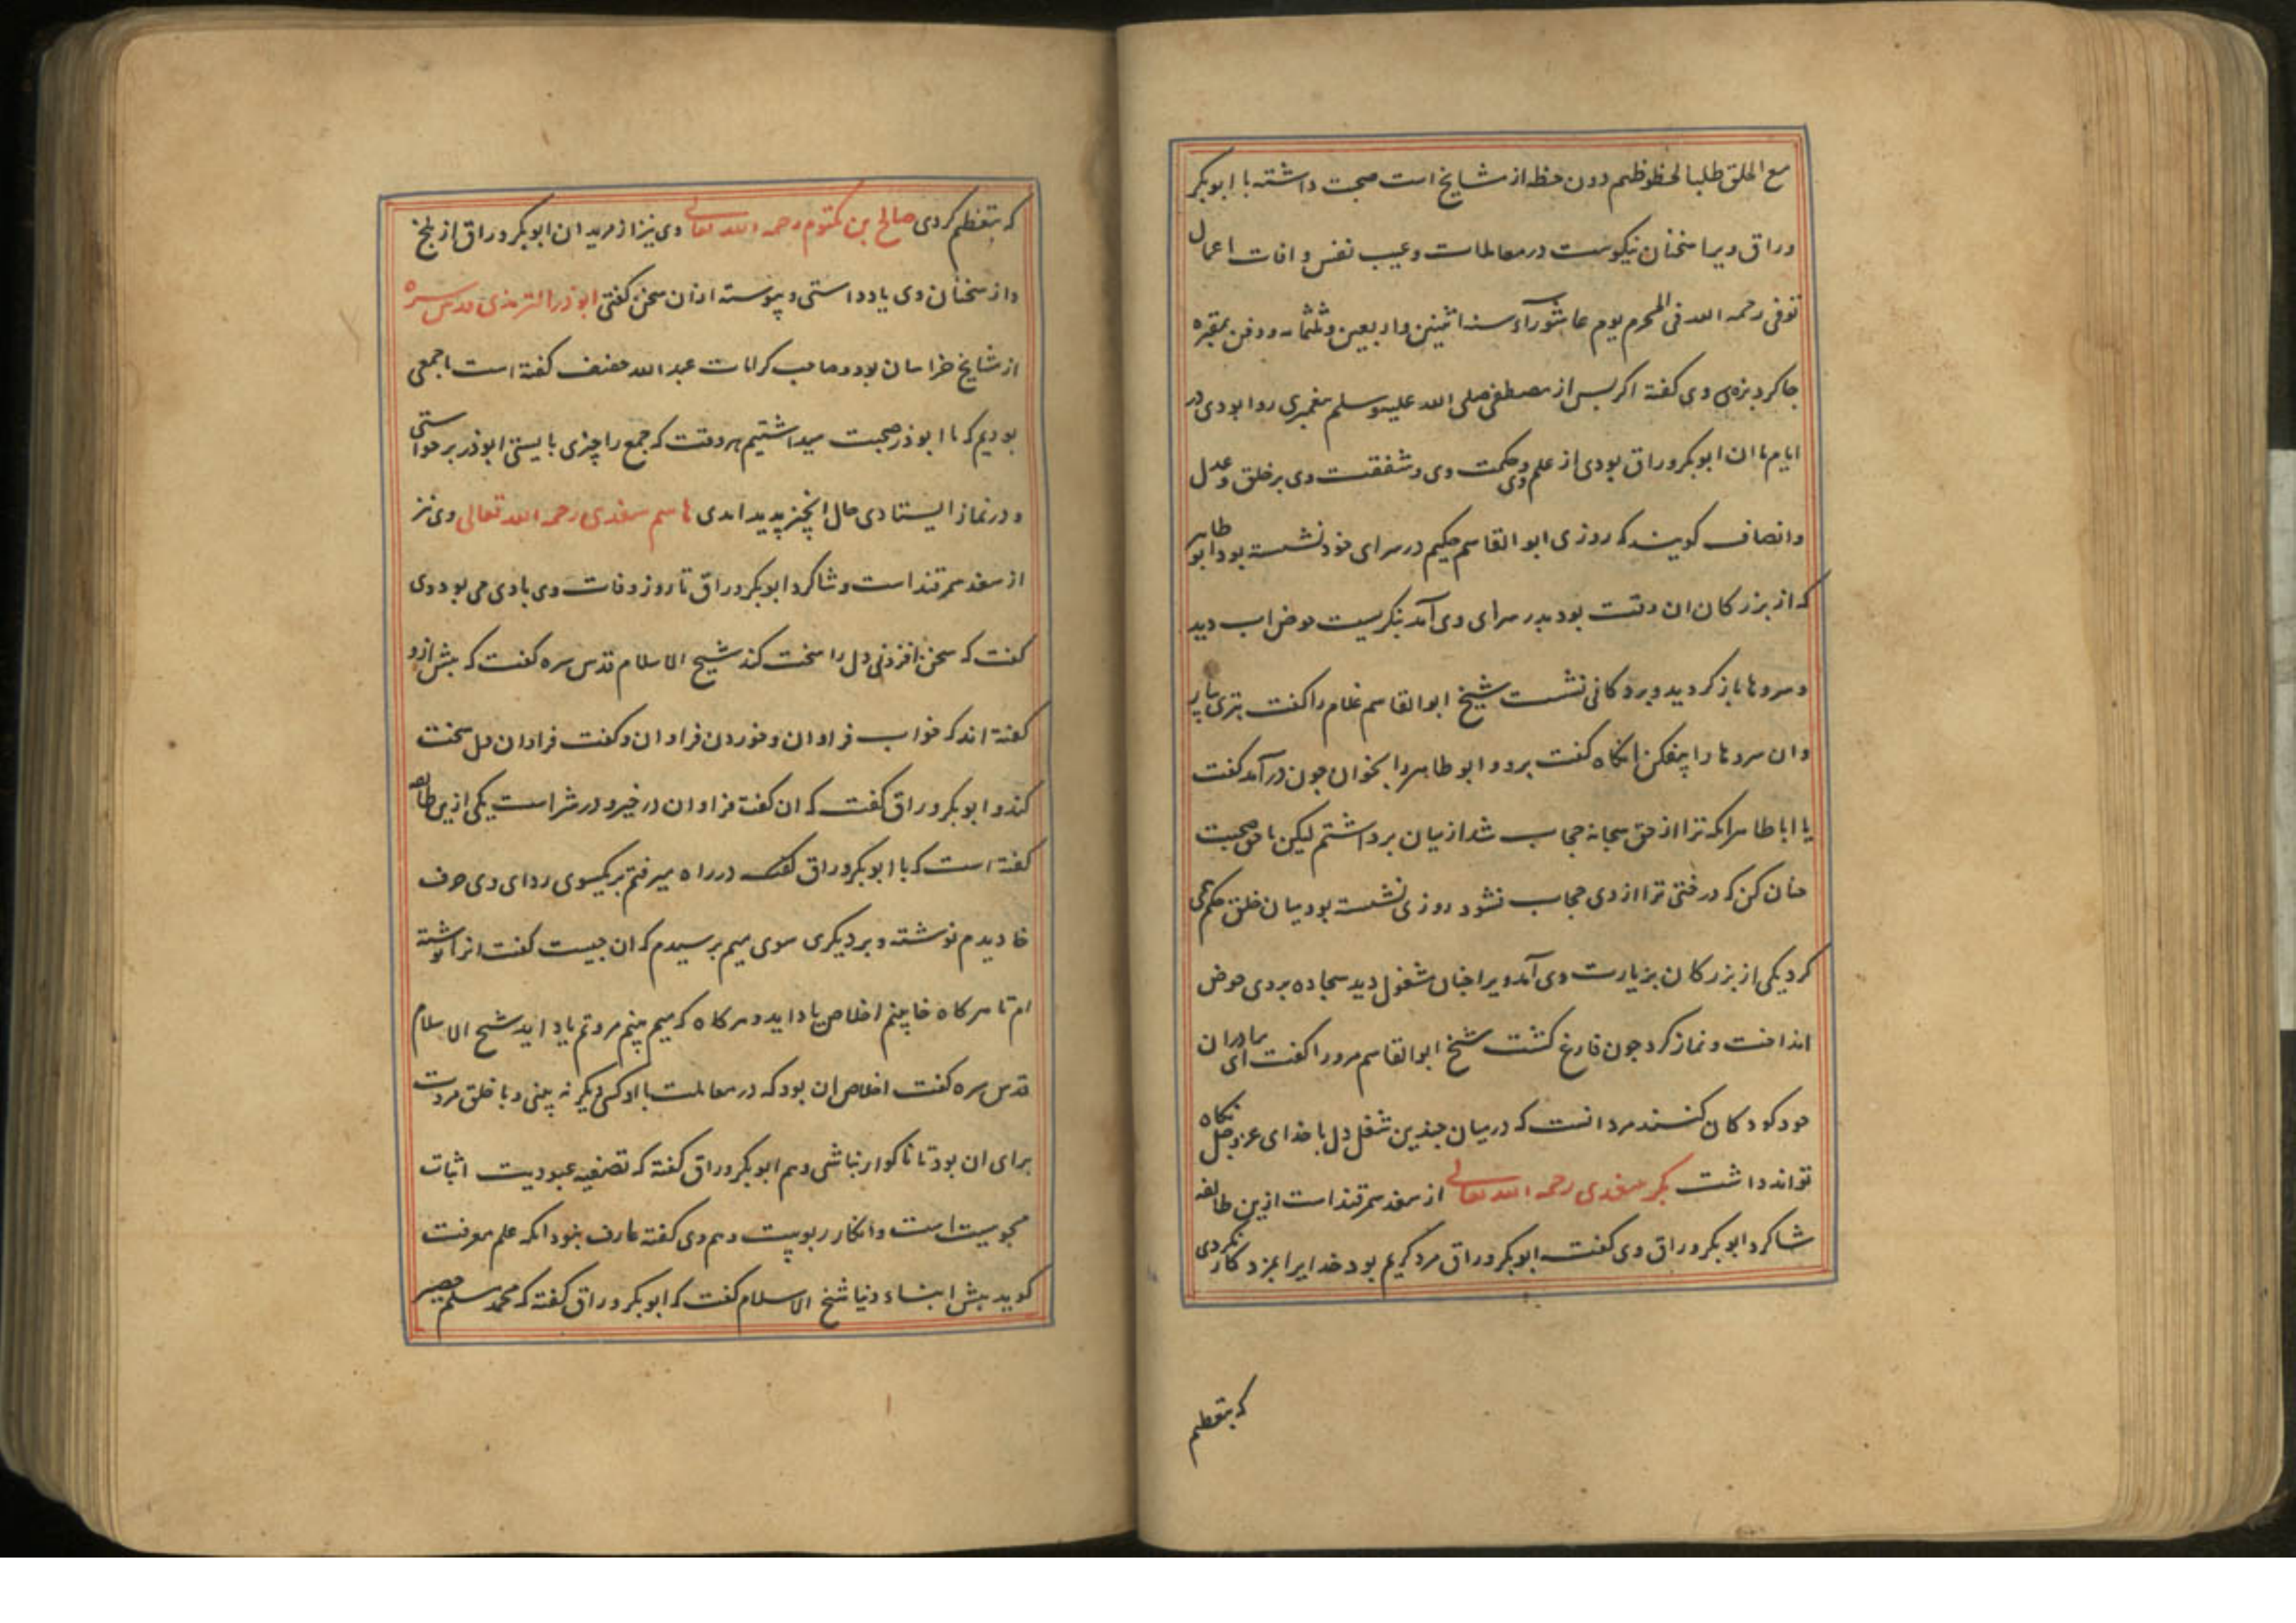 مع الخلق طلبا لحظوظهم دون حظه از مشایخ است صحبت داشته با ابوبکر
وراق ویرا سخنان نیکوست در معاملات و عیب نفس و افات اعمال
توفی رحمه الله فی المحرم یوم عاشوراء سنه اثنین واربعین وثلثمائه ودفن بمقبره
جاکردیزه وی کفته اکر پس از مصطفی صلی الله علیه وسلم پیغمبری روا بودی در
ایام ما ان ابوبکر وراق بودی از علم وی و حکمت وی و شفقت وی بر خلق و عدل
وانصاف کویند که روزی ابوالقاسم حکیم در سرای خود نشسته بود ابو طاهر
که از بزرکان ان وقت بود بدر سرای وی آمد بنکریست حوض اب دید
و سروها باز کردید و بر دکانی نشست شیخ ابوالقاسم غلام را کفت تبری بیار
وان سروها را بیفکن انکاه کفت برو و ابو طاهر را بخوان جون درآمد کفت
یا ابا طاهر انکه ترا از حق سبحانه حجاب شد از میان برداشتم لیکن با حق صحبت
چنان کن که درختی ترا از وی حجاب نشود روزی نشسته بود میان خلق حکم می
کرد یکی از بزرکان بزیارت وی آمد ویرا چنان مشغول دید سجاده بر روی حوض
انداخت و نماز کرد جون فارغ کشت شیخ ابوالقاسم مرورا کفت ای برادر ان
خود کودکان کنند مرد انست که در میان چندین شغل دل با خدای عز و جل نکاه
تواند داشت بکر سغدی رحمه الله تعالی از سغد سمرقند است ازین طائفه
شاکرد ابوبکر وراق وی کفت ابوبکر وراق مرد کریم بود خدایرا بمزد کار نکردی
که بتعظیم
که بتعظیم کردی صالح بن مکتوم رحمه الله تعالی وی نیز از مریدان ابوبکر وراق از بلخ
و از سخنان وی یاد داشتی و پیوسته از ان سخن کفتی ابوذر الترمذی قدس سره
از مشایخ خراسان بود و صاحب کرامات عبد الله خفیف کفته است با جمعی
بودیم که با ابوذر صحبت میداشتیم هر وقت که جمع را چیزی بایستی ابوذر برخواستی
و در نماز ایستادی حال انچیز پدید امدی هاشم سغدی رحمه الله تعالی وی نیز
از سغد سمرقند است و شاکرد ابوبکر وراق تا روز وفات وی با وی می بود وی
کفت که سخن افزونی دل را سخت کند شیخ الاسلام قدس سره کفت که پیش ازو
کفته اند که خواب فراوان و خوردن فراوان و کفت فراوان دل سخت
کند و ابوبکر وراق کفت که ان کفت فراوان در خیر و در شر است یکی ازین طائفه
کفته است که با ابوبکر وراق در راه میرفتم بر یکسوی ردای وی حرف
خا دیدم نوشته و بر دیکری سوی میم پرسیدم که ان چیست کفت انرا نوشته
ام تا هر کاه خا بینم اخلاص یاد اید و هر کاه که میم بینم مروتم یاد اید شیخ الاسلام
قدس سره کفت اخلاص ان بود که در معاملت با او کس دیکر نه بینی و با خلق مروت
برای ان بود تا ناکوار نباشی و هم ابوبکر وراق کفته که تصفیه عبودیت اثبات
مجوسیت است وانکار ربوبیت و هم وی کفته عارف نبود انکه علم معرفت
کوید پیش ابناء دنیا شیخ الاسلام کفت که ابوبکر وراق کفته که محمد مسلم حصیر